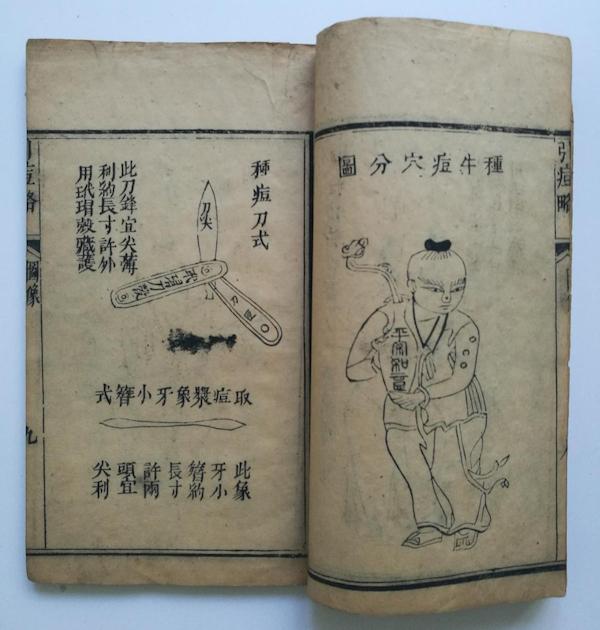 引痘略
種牛痘穴分圖
平安如意
種痘刀式
此刀鋒宜尖薄
利約長寸許外
用玳瑁殼藏護
刀尖
玳瑁刀殼
取痘漿象牙小簪式
此象
牙小
簪約
長寸
許兩
頭宜
尖利
引痘略
圖像
九